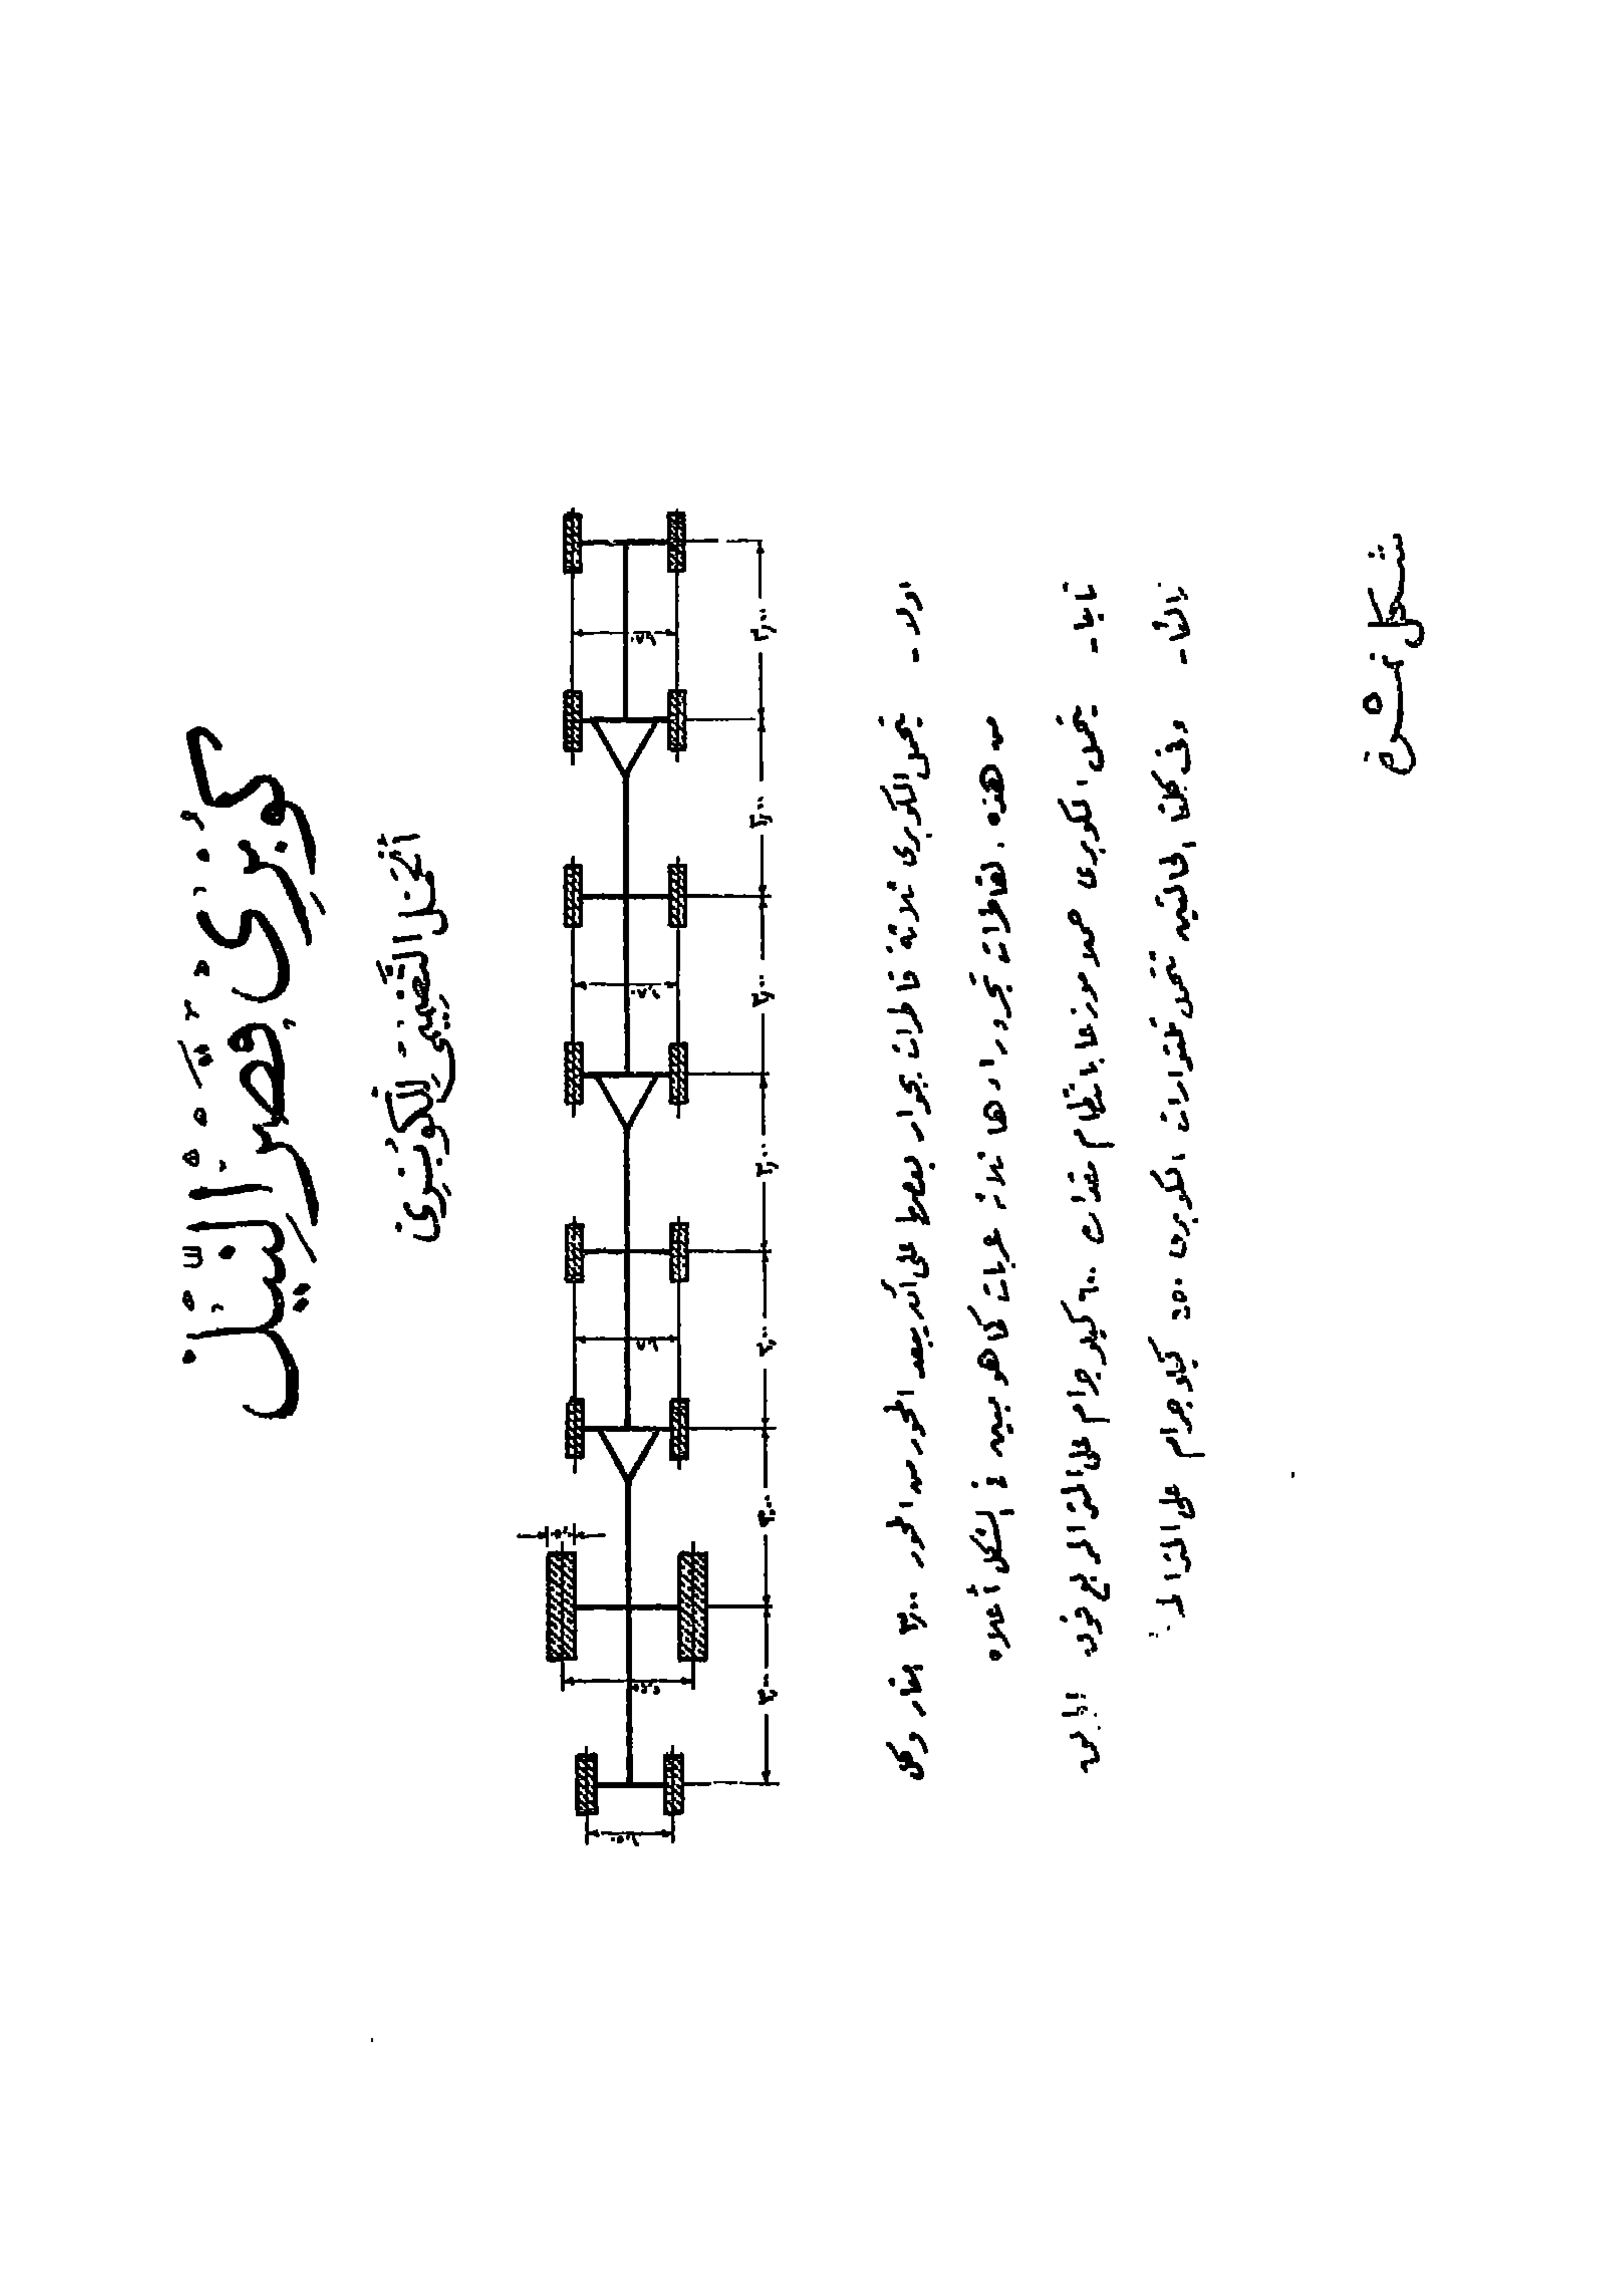 كوبري قصر النيل
الحمل التصميمي للكوبري
٣٫٠٠ ٣٫٠٠ ٣٫٠٠ ٣٫٠٠ ٣٫٠٠ ٣٫٠٠ ٣٫٠٠
اولا - يتحمل الكوبرى ثلاثة قاطرات بجوار بعضها على أن يبعد المحور من المحور ٣٫٠٠ امتار وكل
من هذه القاطرات تجر وراءها ثلاثة عربات كما هو مبين فى الشكل أعلاه
ثانيا - يتحمل الكوبرى حملا موزعا بانتظام مقداره ٦٠٠ كيلوجرام على المتر المربع فوق
ثالثا - وفى كلتا الحالتين تتحمل تلتوارات الكوبرى ٥٥٠ كيلوجرام على المتر
شكل نمرة